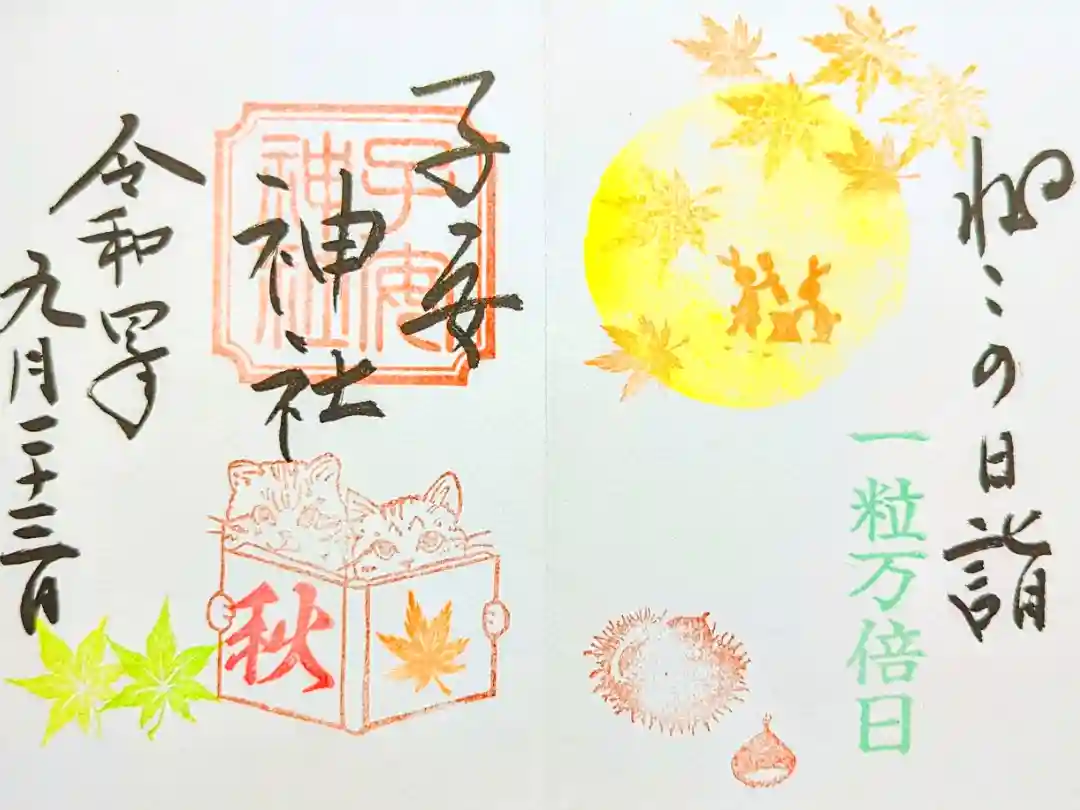 ねこの日詣
一粒万倍日
子安
神社
子安
神社
令和四年
九月二十三日
秋